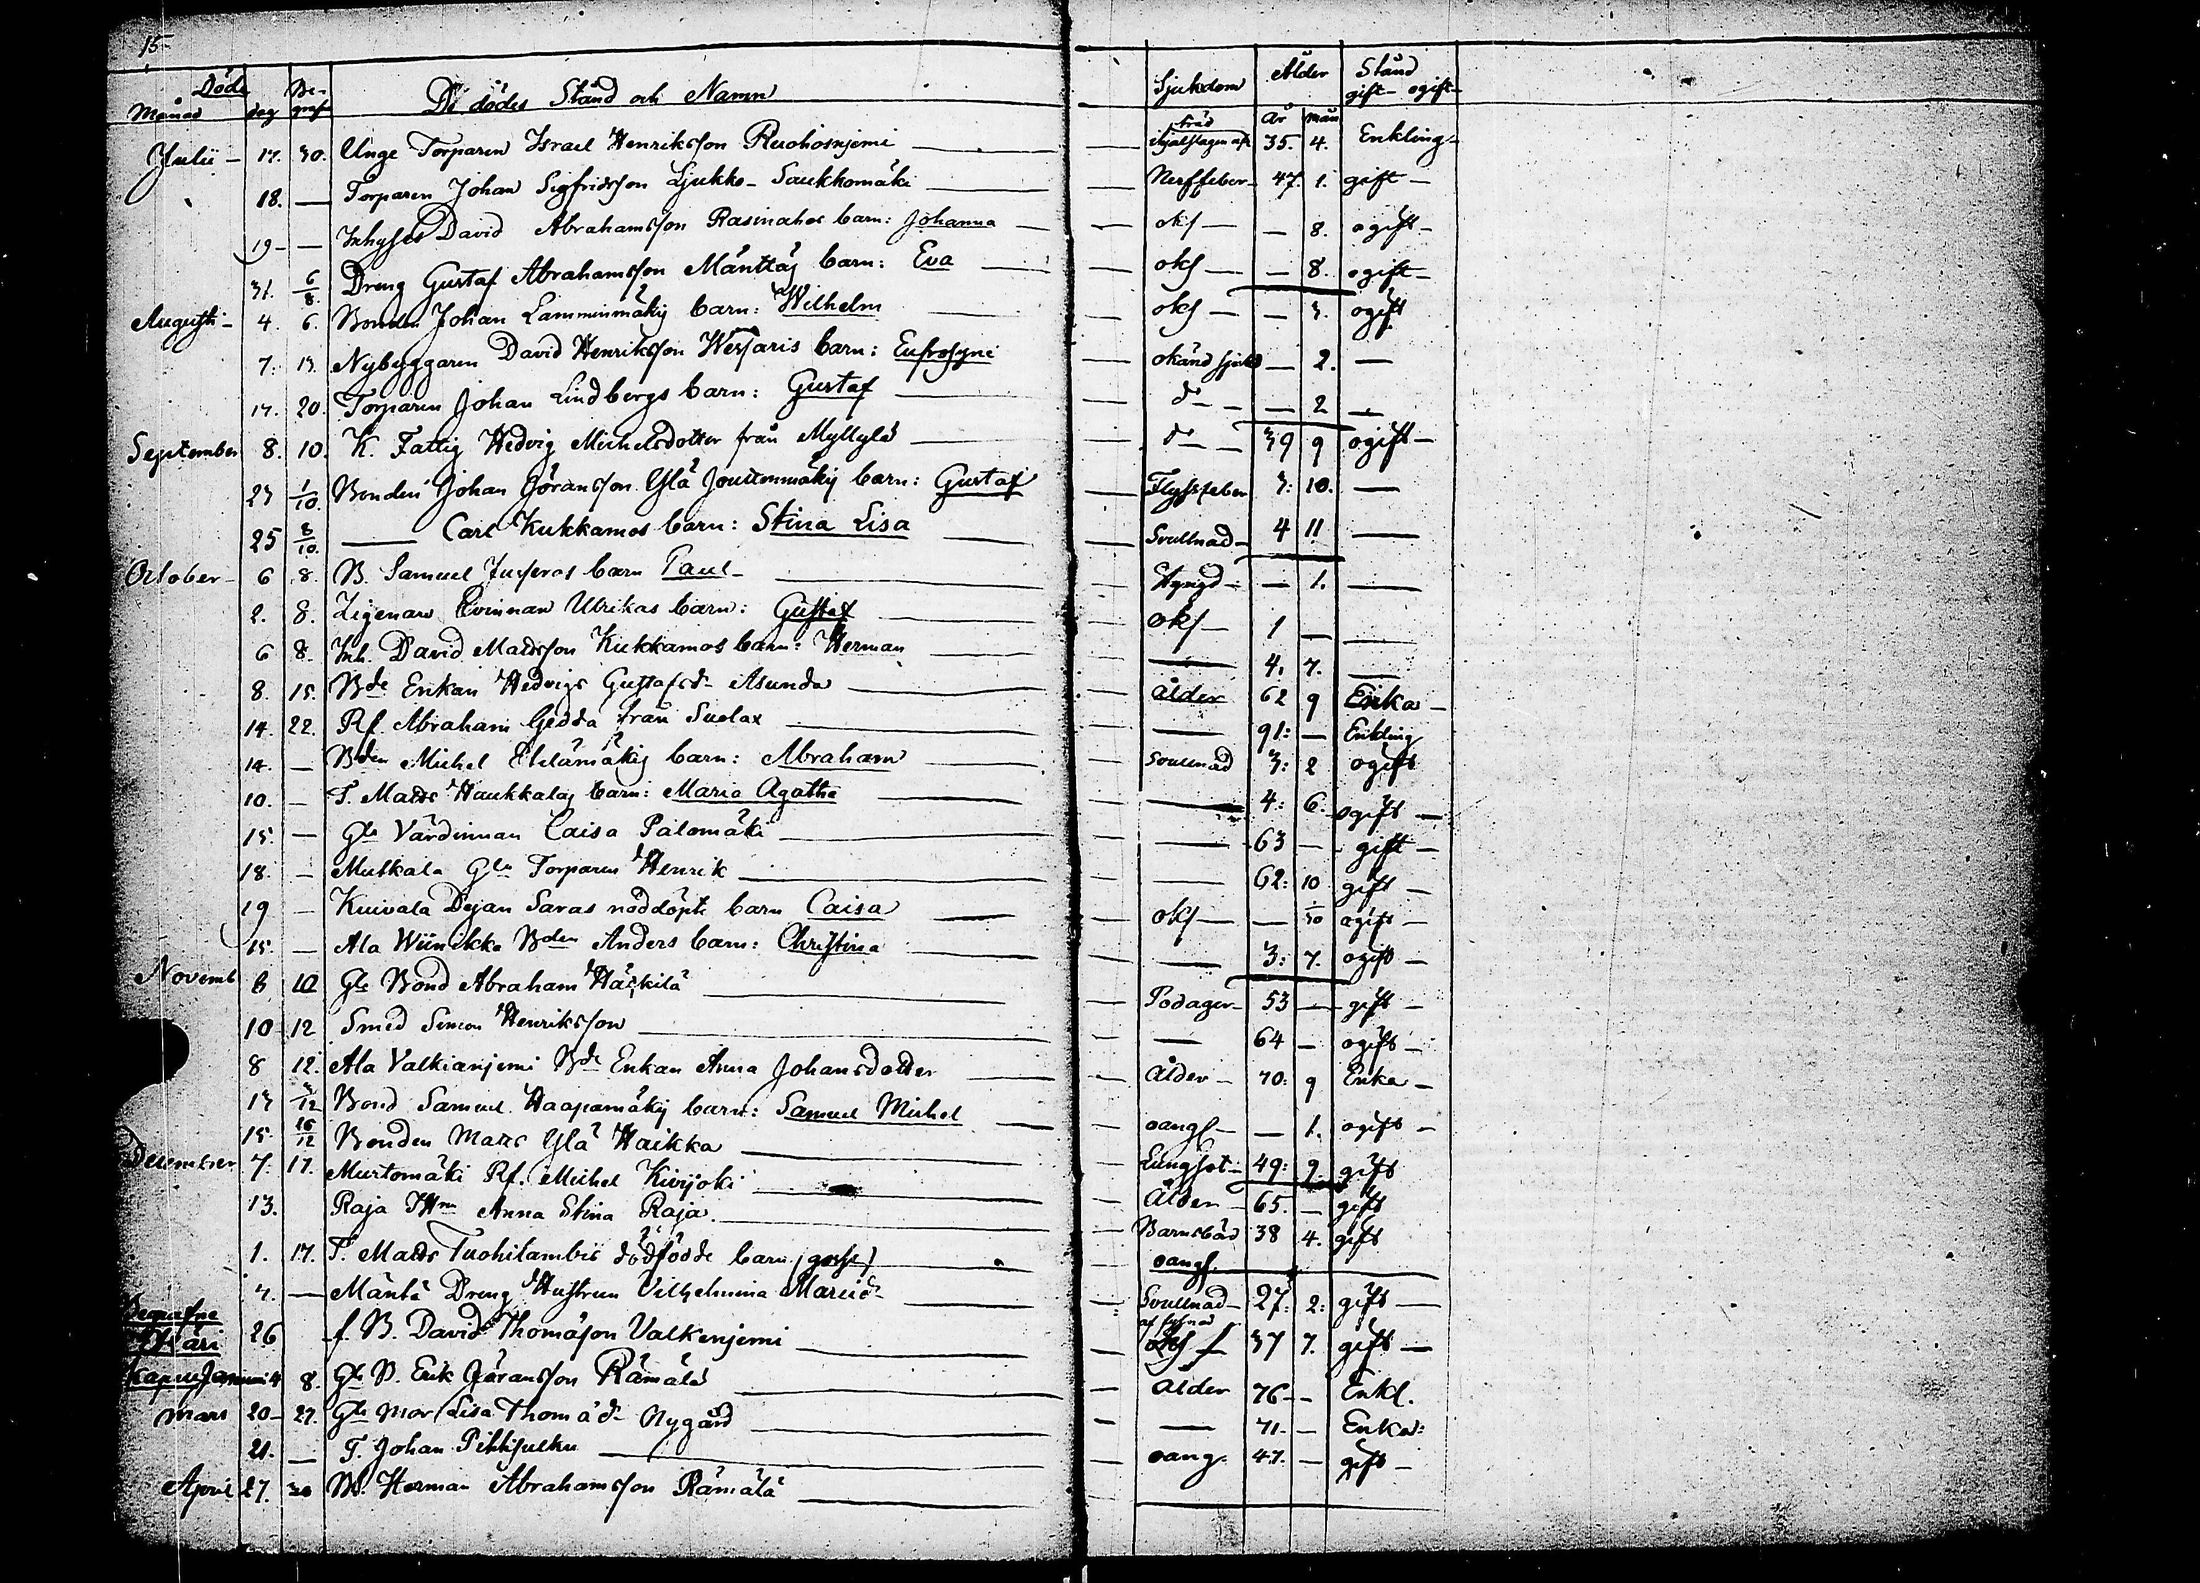 15
Död Be- De dödes Stånd och Namn Sjukdom Ålder Stånd
Månad dag graf År mån gift- ogift-
Julii - 17. 30. Unge Torparen Israel Henriksson Ruohosnjemi ihjälslagen af träd 35. 4. Enkling-
18. — Torparen Johan Sigfridsson Ljukko-Saukkomäki Nerffeber- 47. 1. gift-
19 - — Inhyses David Abrahamsson Rasinahos barn: Johanna okf — — 8. ogift-
31. 6/8. Dreng Gustaf Abrahamsson Mänttäj barn: Eva okf — — 8. ogift-
Augusti- 4. 6. Bonden Johan Lamminmäkij barn: Wilhelm okf — — 3. ogift
7. 13. Nybyggaren David Henriksson Wesaris barn: Eufrosyne okänd sjukd — 2. —
17. 20. Torparen Johan Lindbergs barn: Gustaf d° — — 2 —
September 8. 10. K. Fattig Hedvig Michelsdotter från Myllylä d° — 39 9 ogift-
23 1/10. Bonden Johan Göransson Ylä Jouttenmäkij barn: Gustaf Flyssfeber 3: 10. —
25 8/10. — Carl Kukkamos barn: Stina Lisa Svullnad- 4 11 —
October- 6 8. B. Samuel Juseras barn Paul- — 1. —
2. 8. Zigenare Qvinnan Ulrikas barn: Gustaf okf — 1 — —
6 8. Inh. David Mattsson Kukkamos barn: Herman — 4. 7. —
8. 15. Bde Enkan Hedvigs Gustafsd- Asunda ålder 62 9 Enka-
14. 22. Rf. Abraham Gedda från Suolax — 91: — Enkling
14. — Bden Michel Ehlämäkij barn: Abraham Svullnad 3: 2 ogift
10. — T. Matts Haukkalaj barn: Maria Agatha — 4: 6. ogift —
15. — Gla Värdinnan Caisa Palomäki — 63 — gift-
18. — Mutkala Gle Torparen Henrik — 62: 10 gift —
19 — Kuivala Dejan Saras nöddöpte barn Caisa okf — — 1/30 ogift —
15. — Ala Wiinikka Bden Anders barn: Christina — 3: 7. ogift —
Novemb 6 12 Gle Bond Abraham Häckilä Podager- 53 — gift —
10 12 Smed Simon Henriksson — 64 — ogift —
8 12. Ala Valkianjemi Bde Enkan Anna Johansdotter ålder - 70: 9 Enka —
13 3/12 Bond Samuel Haapamäkij barn: Samuel Michel oangf — — 1. ogift —
15. 16/12 Bonden Matts Ylä Haikka Lungsot- 49: 9. gift
December 7. 17. Murtomäki Rf. Michel Kivijoki Ålder 65. — gift
13. Raja Anna Stina Raja. Barnsbäd 38 4. gift
1. 17. T. Matts Tuohilambis dödfödde barn (gosse) oangf.
4. — Mäntä Dreng Hustrun Vilhelmina Svullnad- 27: 2: gift —
26 f. B. David Thomason Valkenjemi 37 7. gift —
4 8. Gle B. Erik Göransson Rämälä ålder 76 — Enkl.
Mars 20 - 27. Gle Mor Lisa Thomäd- Nygård — 71. — Enka:
21. — T. Johan Pihkjulku oang. 47. — gift —
April 27. 30 B. Herman Abrahamsson Rämälä